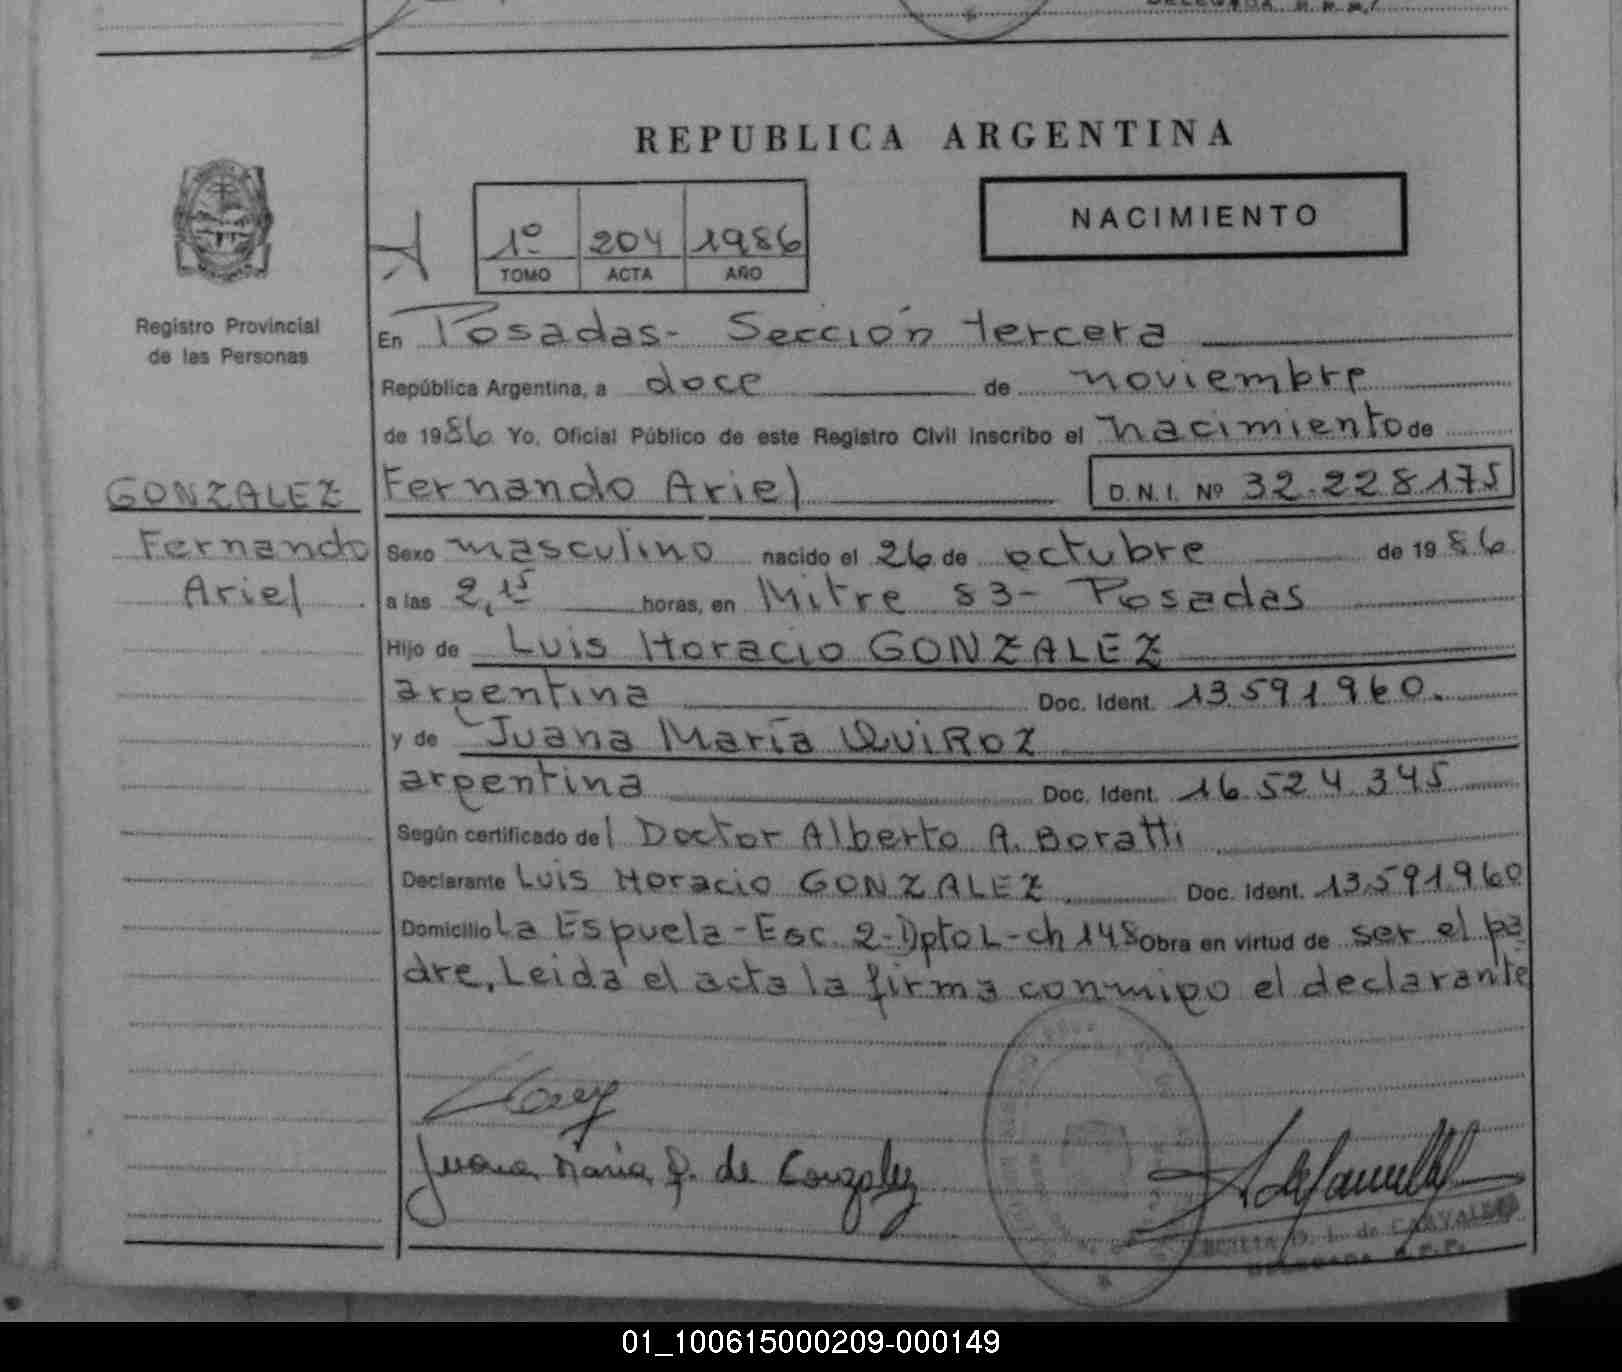 REPUBLICA ARGENTINA
NACIMIENTO
1º 204 1986
TOMO ACTA AÑO
Registro Provincial
de las Personas
En Posadas- Sección tercera
República Argentina, a doce de noviembre
de 1986 Yo, Oficial Público de este Registro Civil inscribo el nacimiento de
GONZALEZ
Fernando
Ariel
Fernando Ariel D.N.I. Nº 32.228175
Sexo masculino nacido el 26 de octubre de 1986
a las 2,15 horas, en Mitre 83- Posadas
Hijo de Luis Horacio GONZALEZ
argentina Doc. Ident. 13.591.960.
y de Juana María QUIROZ
argentina Doc. Ident. 16.524.345
Según certificado del Doctor Alberto A. Boratti
Declarante Luis Horacio GONZALEZ Doc. Ident. 13.591960
Domicilio La Espuela-Esc 2-Dpto L-ch 148 Obra en virtud de ser el pa
dre, Leida el acta la firma conmigo el declarante
Juana Maria Q. de Gonzalez
D. L. de CARVALHO
DELEGADA R.P.P.
01_100615000209-000149